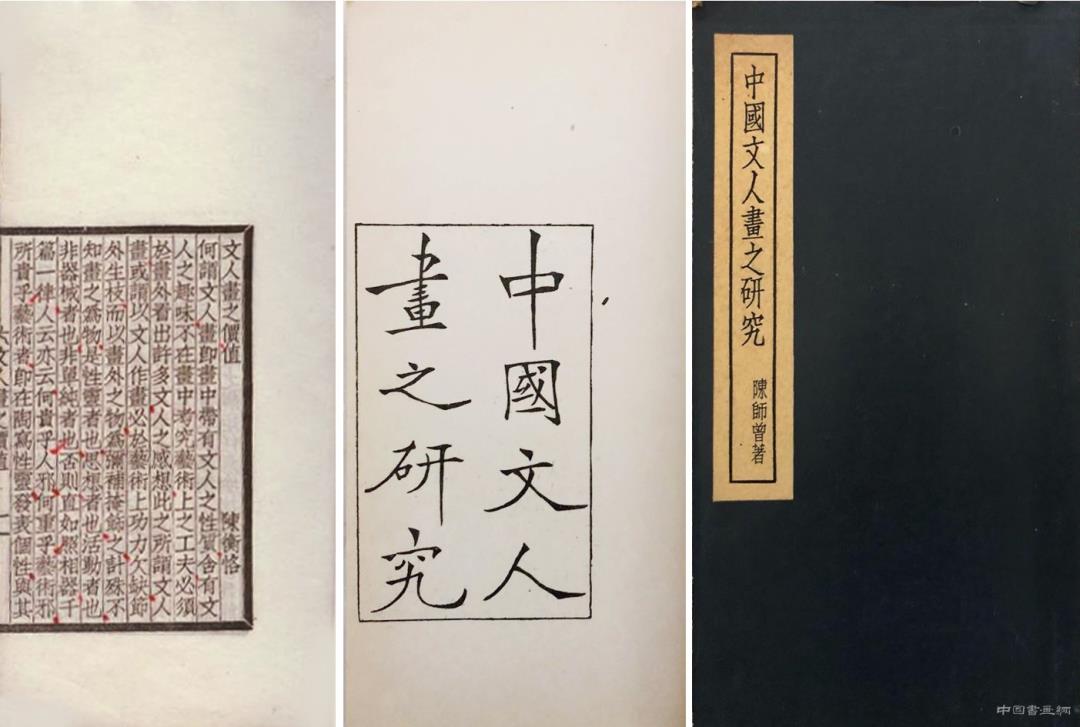 文人畫之價值 陳衡恪
何謂文人畫即畫中帶有文人之性質含有文
人之趣味不在畫中考究藝術上之工夫必須
於畫外看出許多文人之感想此之所謂文人
畫或謂以文人作畫必於藝術上功力欠缺節
外生枝而以畫外之物爲彌補掩飾之計殊不
知畫之爲物是性靈者也思想者也活動者也
非器械者也非單純者也否則直如照相器千
篇一律人云亦云何貴乎人邪何重乎藝術邪
所貴乎藝術者卽在陶寫性靈發表個性與其
中國文人
畫之研究
中國文人畫之研究 陳師曾著
中国書画網